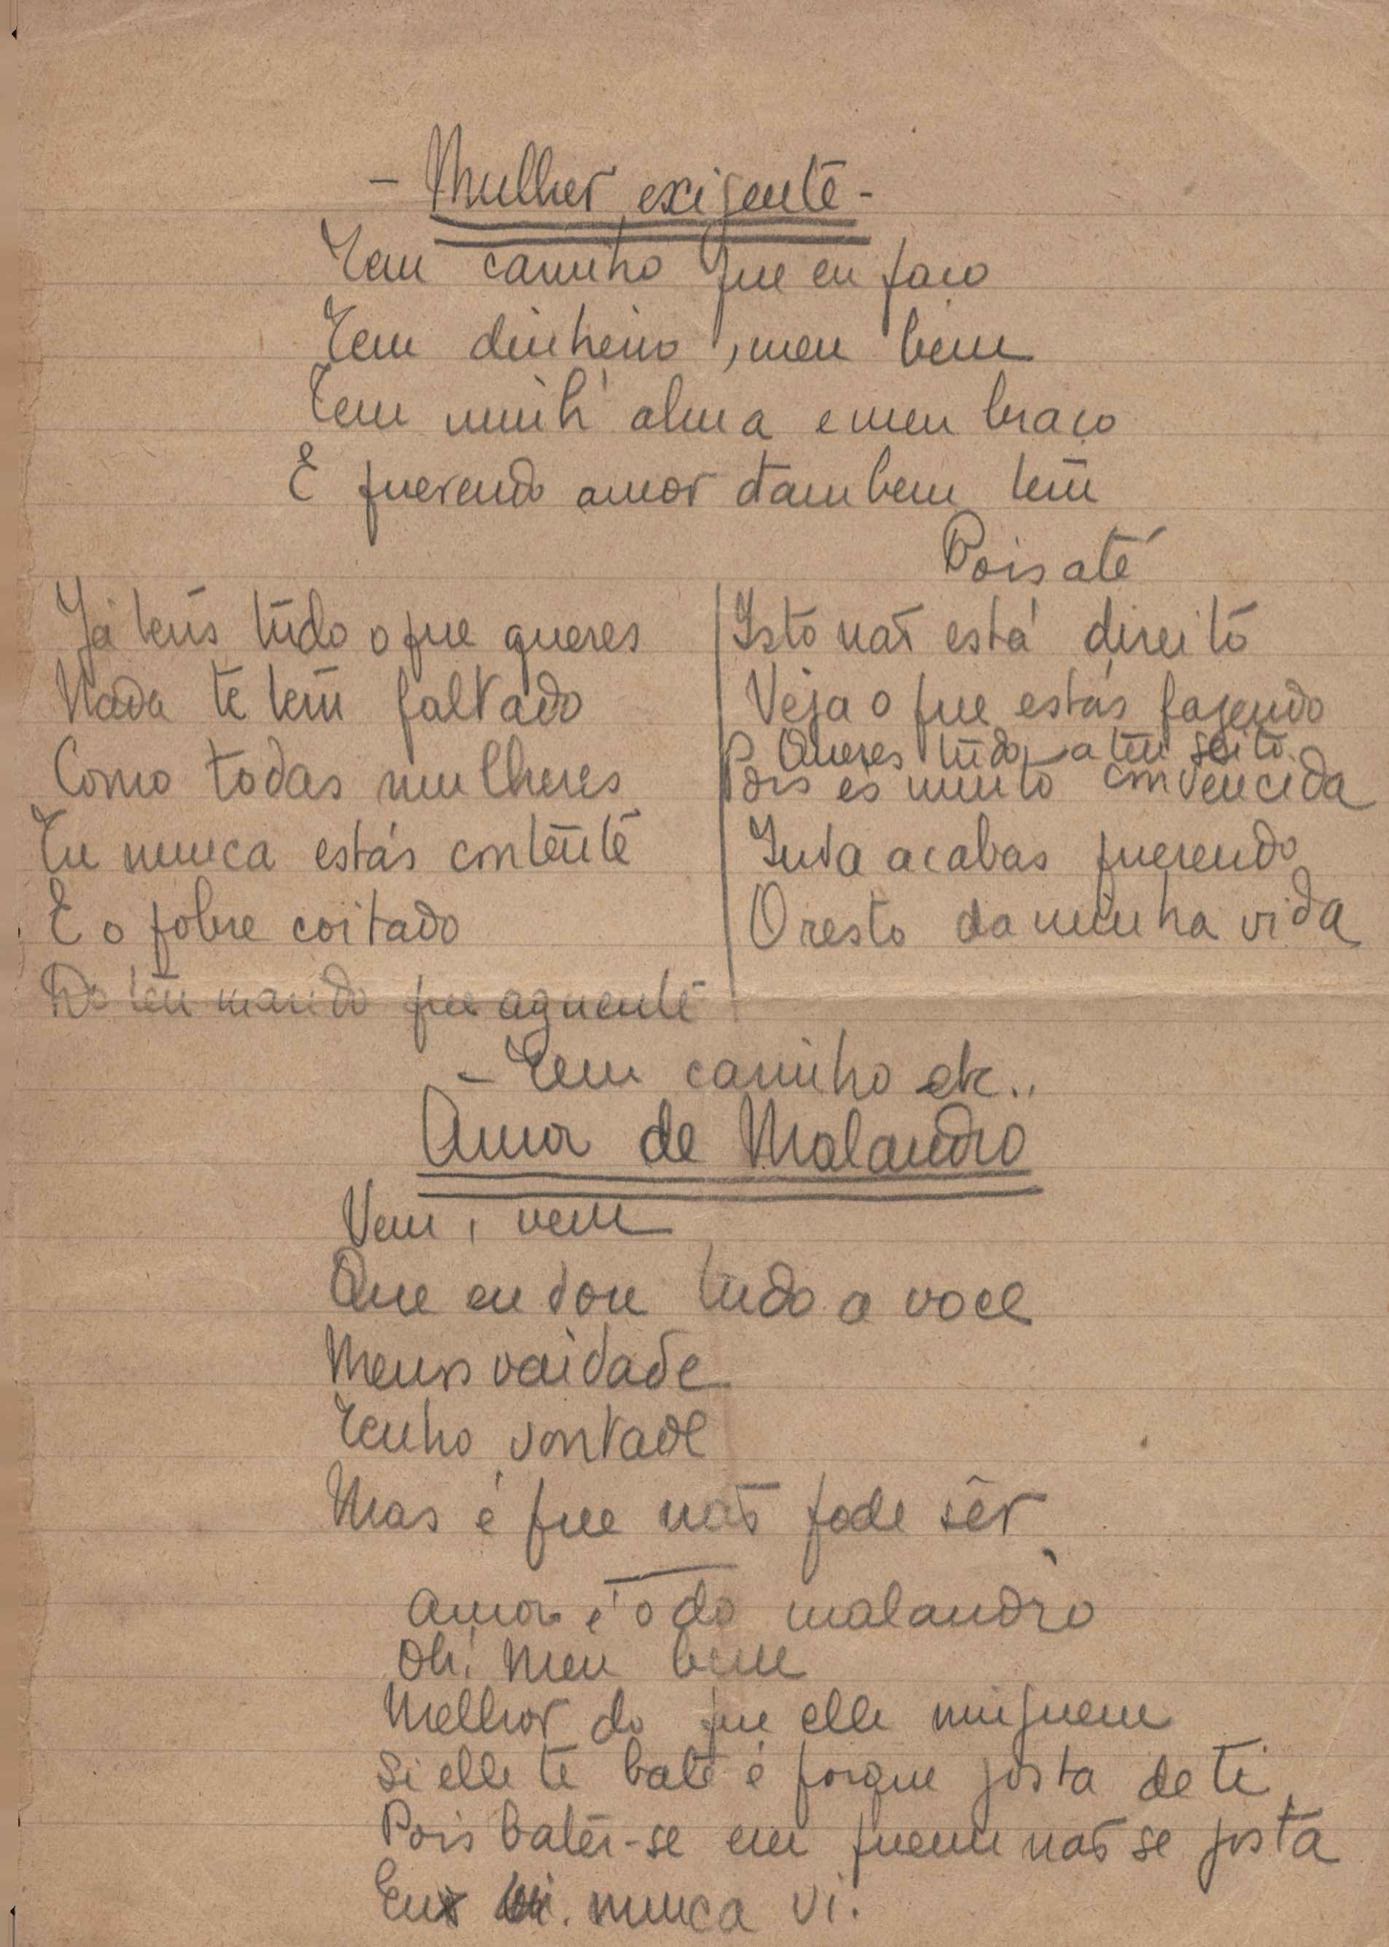 - Mulher exigente -
Tem carinho que eu faço
Tem dinheiro, meu bem
Tem minh' alma e meu braço
E querendo amor tambem tem
Pois até
Já tens tudo o que queres
Nada te tem faltado
Como todas mulheres
Tu nunca estás contente
E o pobre coitado
Do teu marido que aguente
Isto não está direito
Veja o que estás fazendo
Queres tudo a teu geito
Pois és muito convencida
Inda acabas querendo
O resto da minha vida
- Tem carinho etc..
Amor de Malandro
Vem, vem
Que eu dou tudo a voce
Menos vaidade
Tenho vontade
Mas é que não pode sêr
Amor é o do malandro
Oh! Meu bem
Melhor do que elle ninguem
Si elle te bate é porque gosta de ti
Pois bater-se em quem não se gosta
Eu nunca vi.